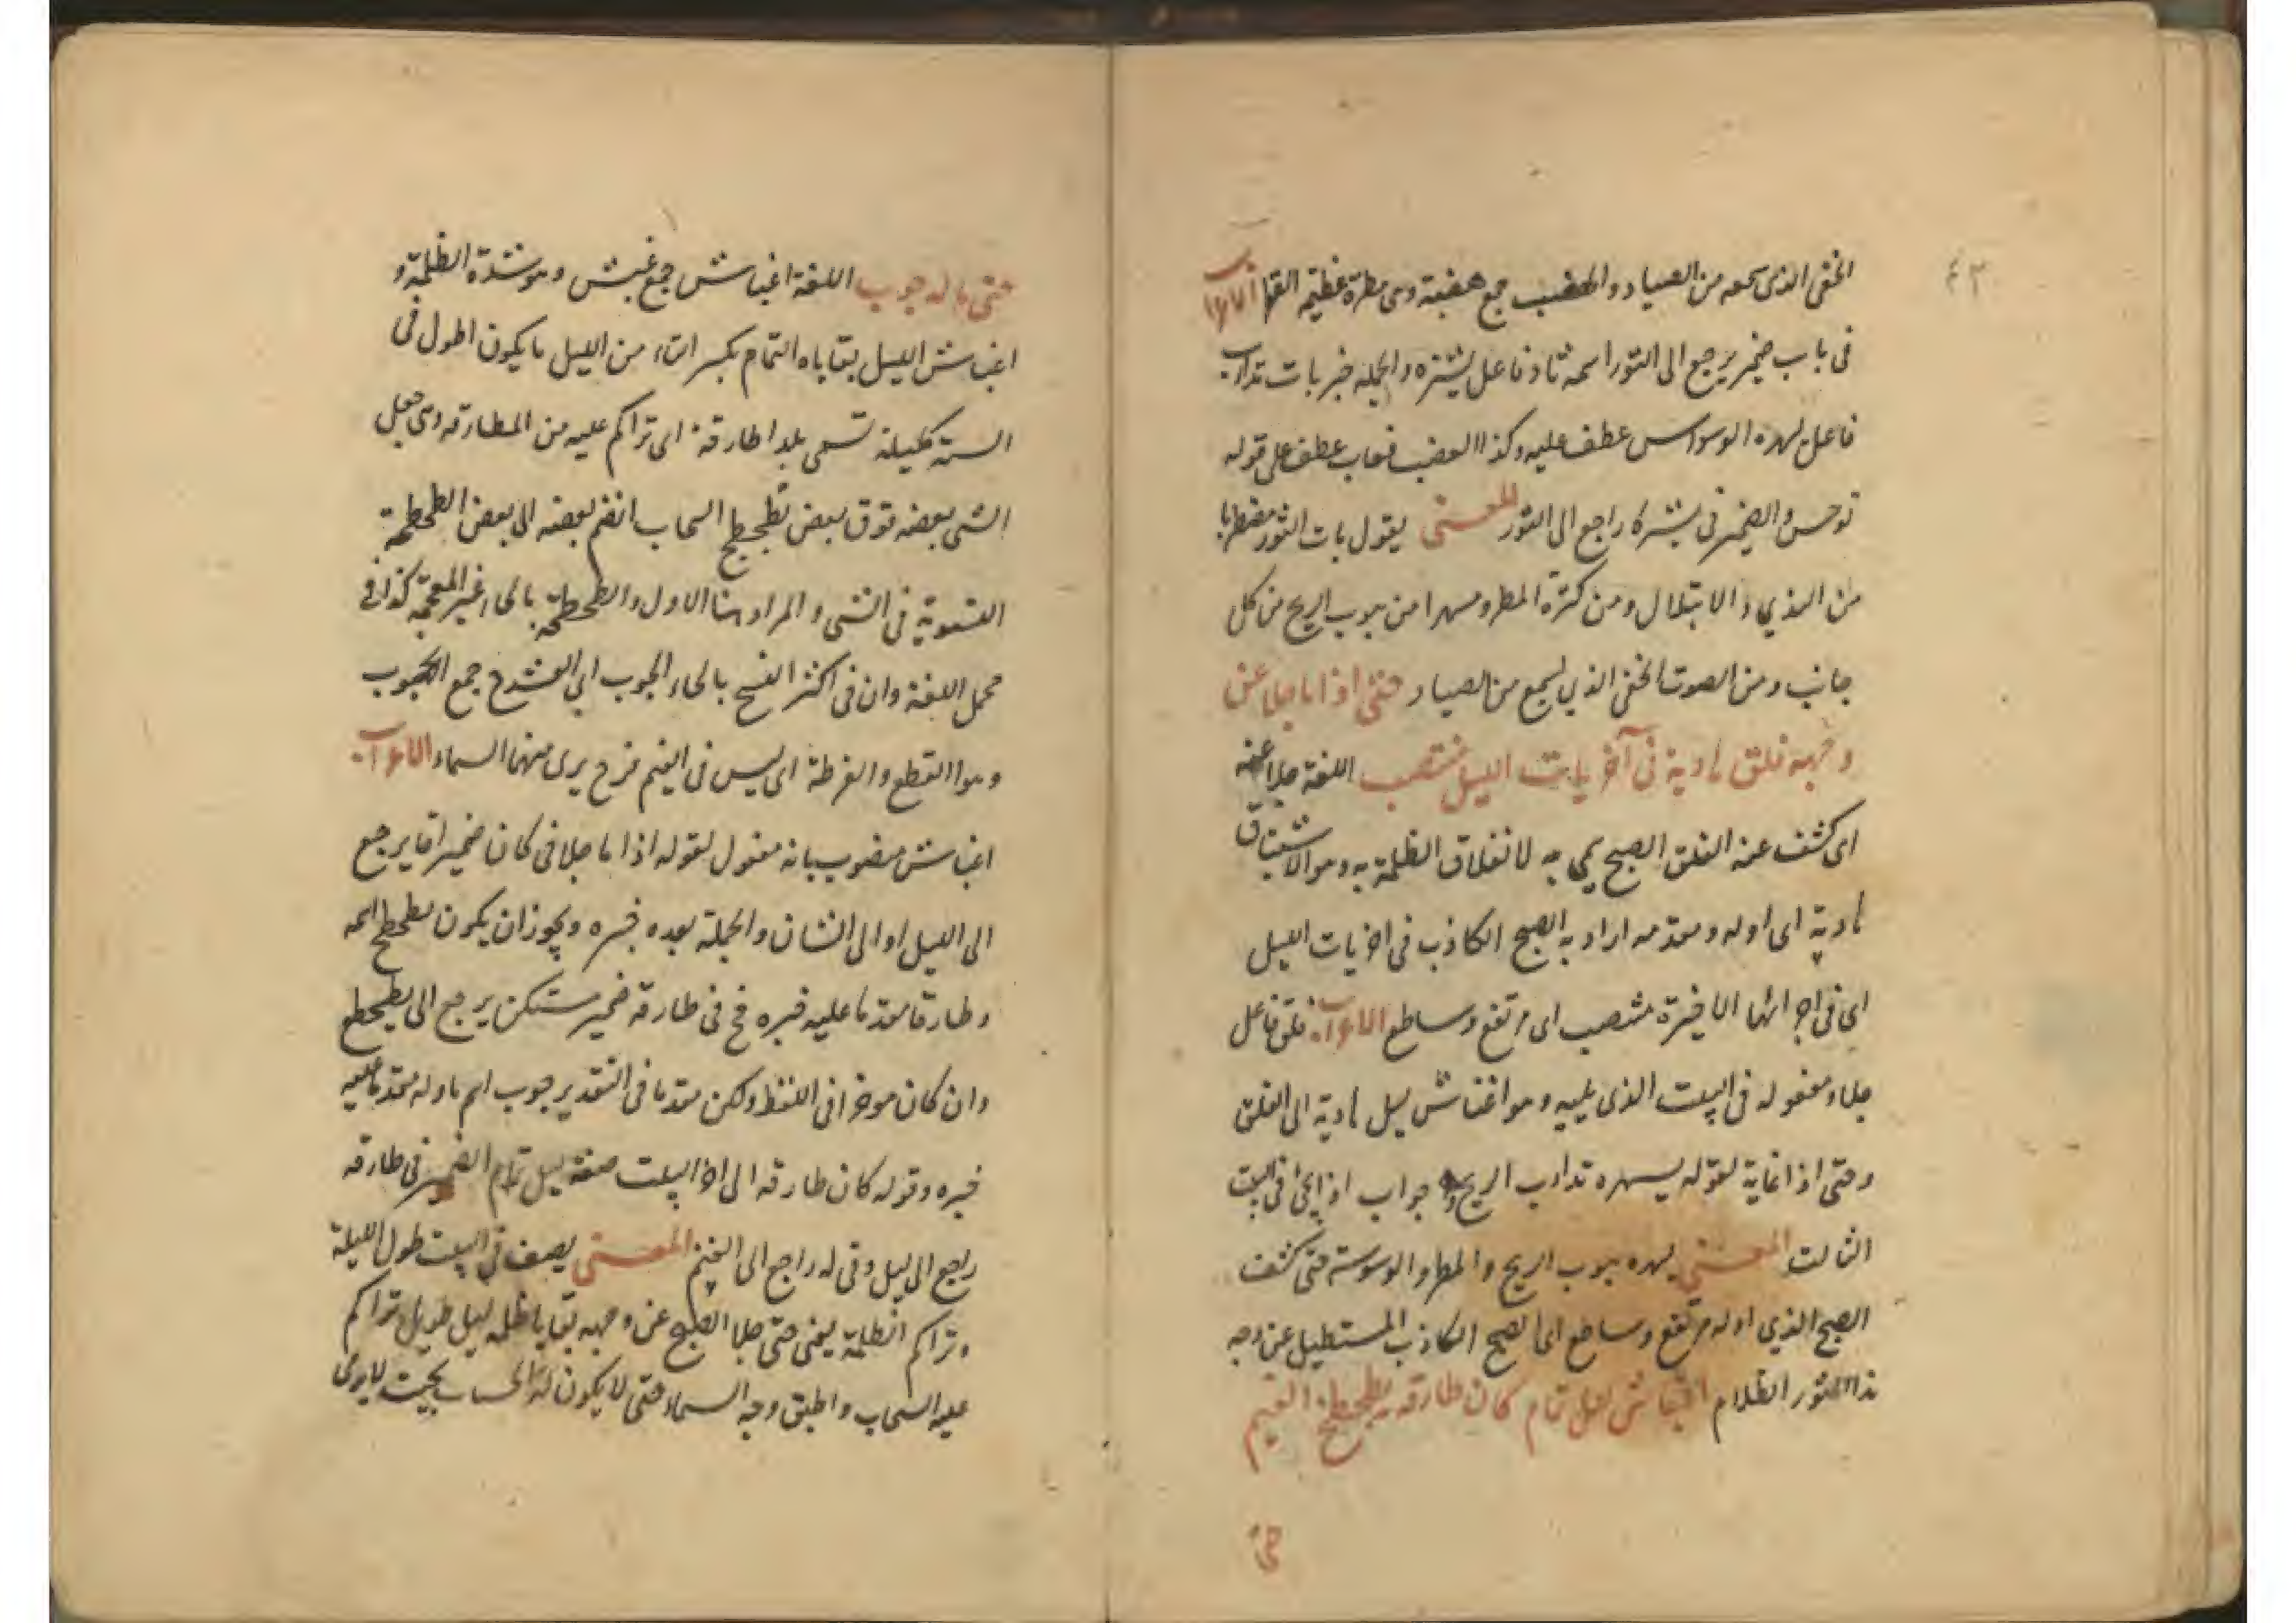 ٤٣
الخفى الذى سمعه من الصياد والهضيب جمع هضبة وهى مطرة عظيمة القطر الاعراب
فى بات ضمير يرجع الى الثور اسمه ثاد فاعل يشئزه والجملة خبر بات تداوب
فاعل يسهره الوسواس عطف عليه وكذا الهضب فبات عطف على قوله
توحس والضمير فى ركزا راجع الى الثور المعنى يقول بات الثور مضطربا
من الندى والابتلال ومن كثرة المطر ومسهرا من هبوب الريح من كل
جانب ومن الصوت الخفى الذى يسمع من الصياد حتى اذا ما جلا عن
وجهه فلق هاديه فى اخريات الليل منتصب اللغة جلا عنه
اى كشف عنه الفلق الصبح سمى به لانفلاق الظلمة به وهو الانشقاق
هاديه اى اوله ومقدمه اراد به الصبح الكاذب فى اخريات الليل
اى فى اجزائها الاخيرة منتصب اى مرتفع وساطع الاعراب فلق فاعل
جلا ومفعوله فى البيت الذى يليه وهو اغباش ليل هاديه الى الفلق
وحتى اذا غاية لقوله يسهره تداوب الريح وجواب اذا يجئ فى البيت
الثالث المعنى يسهره هبوب الريح والمطر والوسوسة حتى كشف
الصبح الذى اوله مرتفع وساطع اى الصبح الكاذب المستطيل عن وجه
هذا الثور الظلام اغباش ليل تمام كان طارقه تطخطخ الغيم
حتى
حتى ما له جوب اللغة اغباش جمع غبش وهو شدة الظلمة و
اغباش الليل بقاياه التمام بكسر التاء من الليل ما يكون اطول فى
السنة كليلة تسمى يلدا طارقه اى تراكم عليه من المطارقة وهى جعل
الشئ بعضه فوق بعض تطخطخ السحاب انضم بعضه الى بعض الطخطخة
التسوية فى الشئ والمراد هنا الاول والطخطخة بالخاء غير المعجمة كذا فى
مجمل اللغة وان فى اكثر النسخ بالحاء الجوب اى الفتدح جمع الجوب
وهو القطع والفرطة اى ليس فى الغيم فرج يرى منها السماء الاعراب
اغباش منصوب بانه مفعول لقوله اذا ما جلا فى كان ضمير اما يرجع
الى الليل او الى الشان والجملة بعده خبره ويجوز ان يكون تطخطخ اسمه
وطارقا مقدما عليه خبره فح فى طارقه ضمير مستكن يرجع الى تطخطخ
وان كان موخرا فى اللفظ ولكن مقدما فى التقدير جوب اسم ما وله مقدما عليه
خبره وقوله كان طارقه الى اخر البيت صفة ليل تمام الضمير فى طارقه
راجع الى ليل وفى له راجع الى الغيم المعنى يصف فى البيت طول الليلة
وتراكم الظلمة يعنى حتى جلا الصبح عن وجهه بقايا ظلمة ليل طويل وتراكم
عليه السحاب واطبق وجه السماء حتى لا يكون له بحيث لا يرى